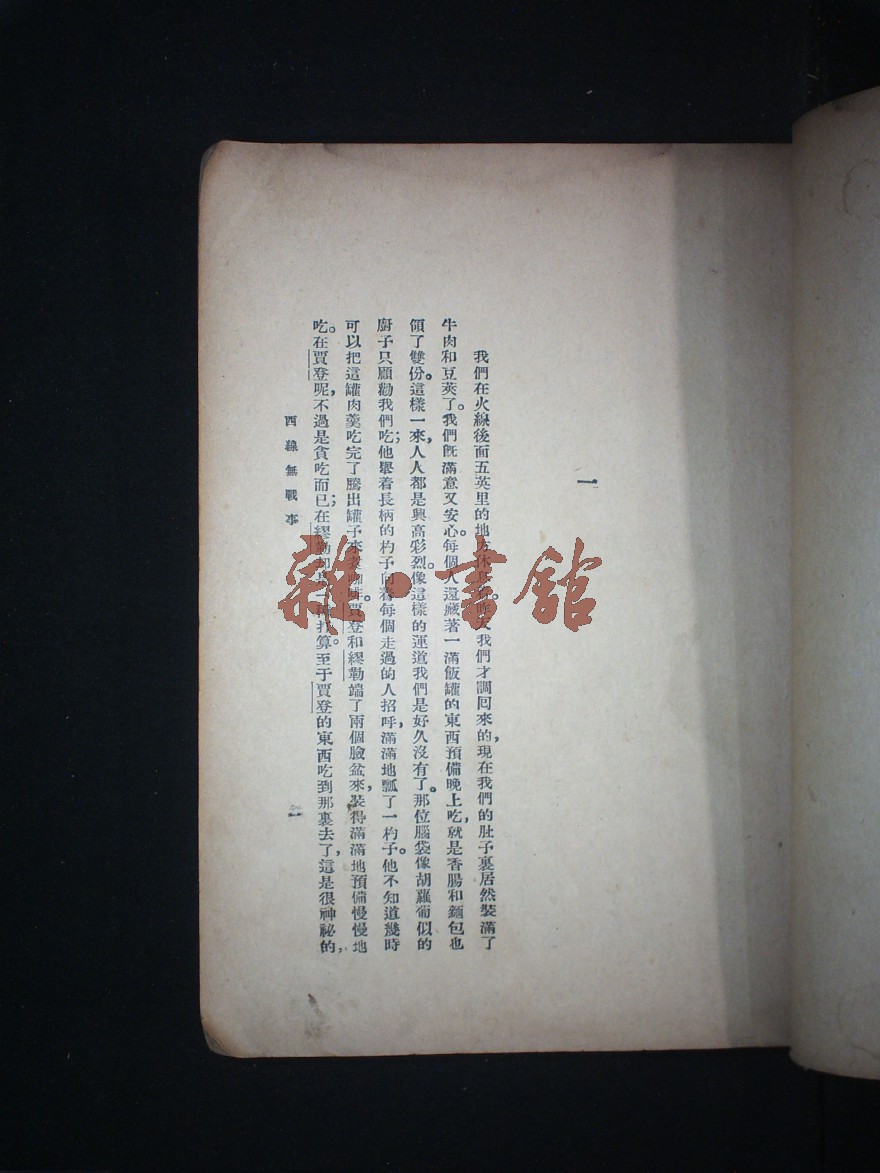 一
我們在火線後面五英里的地方休息。昨天我們才調回來的，現在我們的肚子裏居然裝滿了
牛肉和豆莢了。我們旣滿意又安心。每個人還藏著一滿飯罐的東西預備晚上吃，就是香腸和麵包也
領了雙份。這樣一來，人人都是興高彩烈。像這樣的運道我們是好久沒有了。那位腦袋像胡蘿蔔似的
廚子只顧勸我們吃；他舉着長柄的杓子向着每個走過的人招呼，滿滿地瓢了一杓子。他不知道幾時
可以把這罐肉羹吃完了騰出罐子來煑咖啡。賈登和繆勒端了兩個臉盆來，裝得滿滿地預備慢慢地
吃。在賈登呢，不過是貪吃而已；在繆勒打算。至于賈登的東西吃到那裏去了，這是很神祕的，
西線無戰事
一
雜·書館